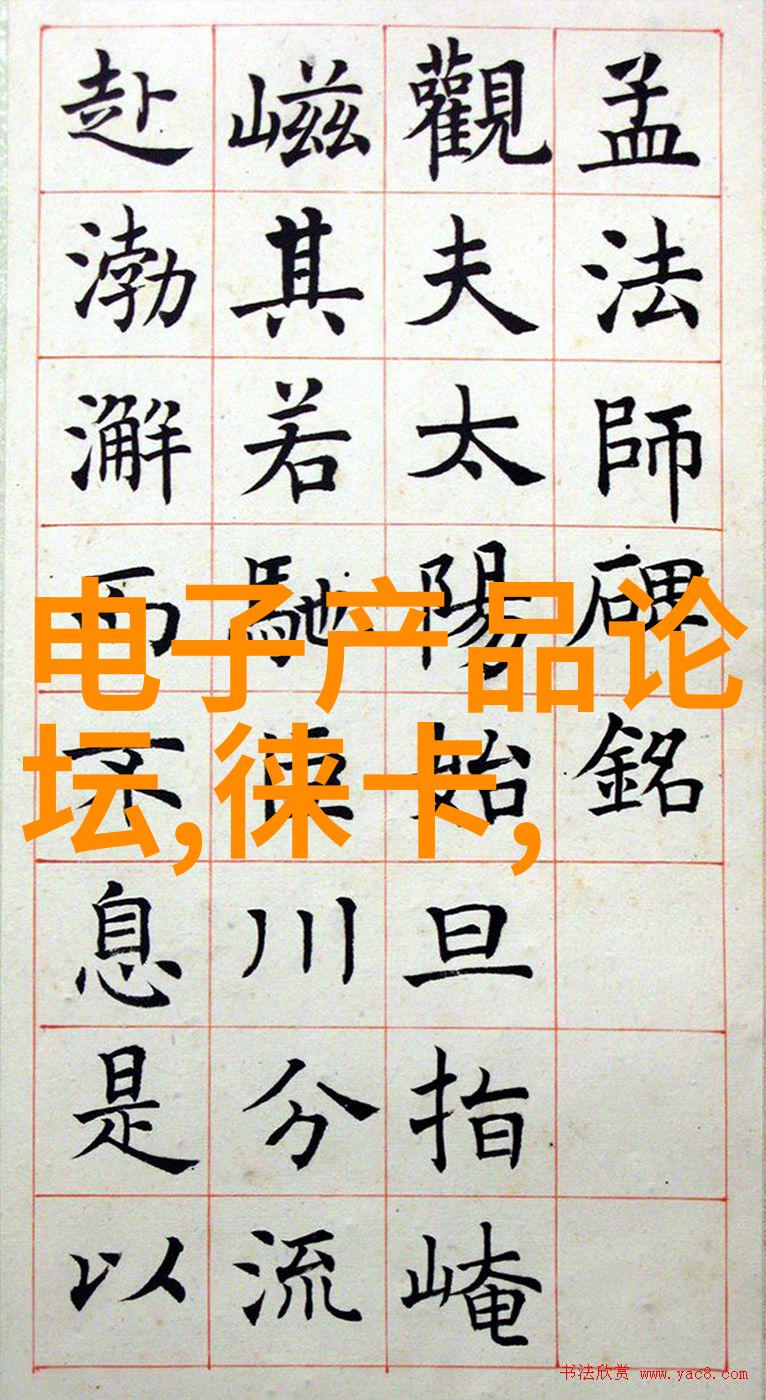 孟法師碑銘
觀夫太陽始旦指崦
嵫其若馳川分流
赴渤澥而不息是以
电子产品论
坛,徕卡,
书法欣赏 www.yac8.com